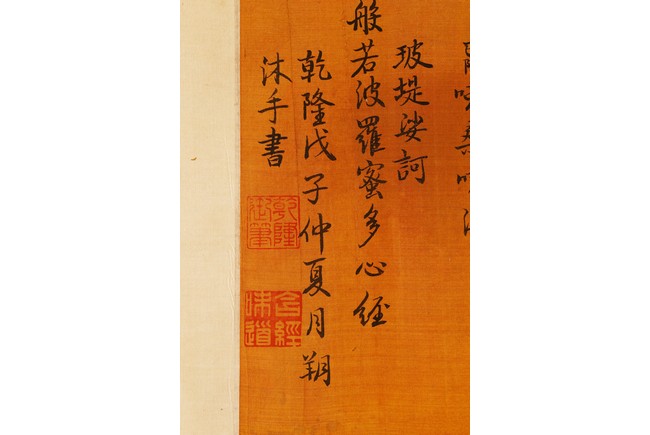 玻堤娑訶
般若波羅蜜多心經
乾隆戊子仲夏月朔
沐手書
乾隆
御筆
含經
味道